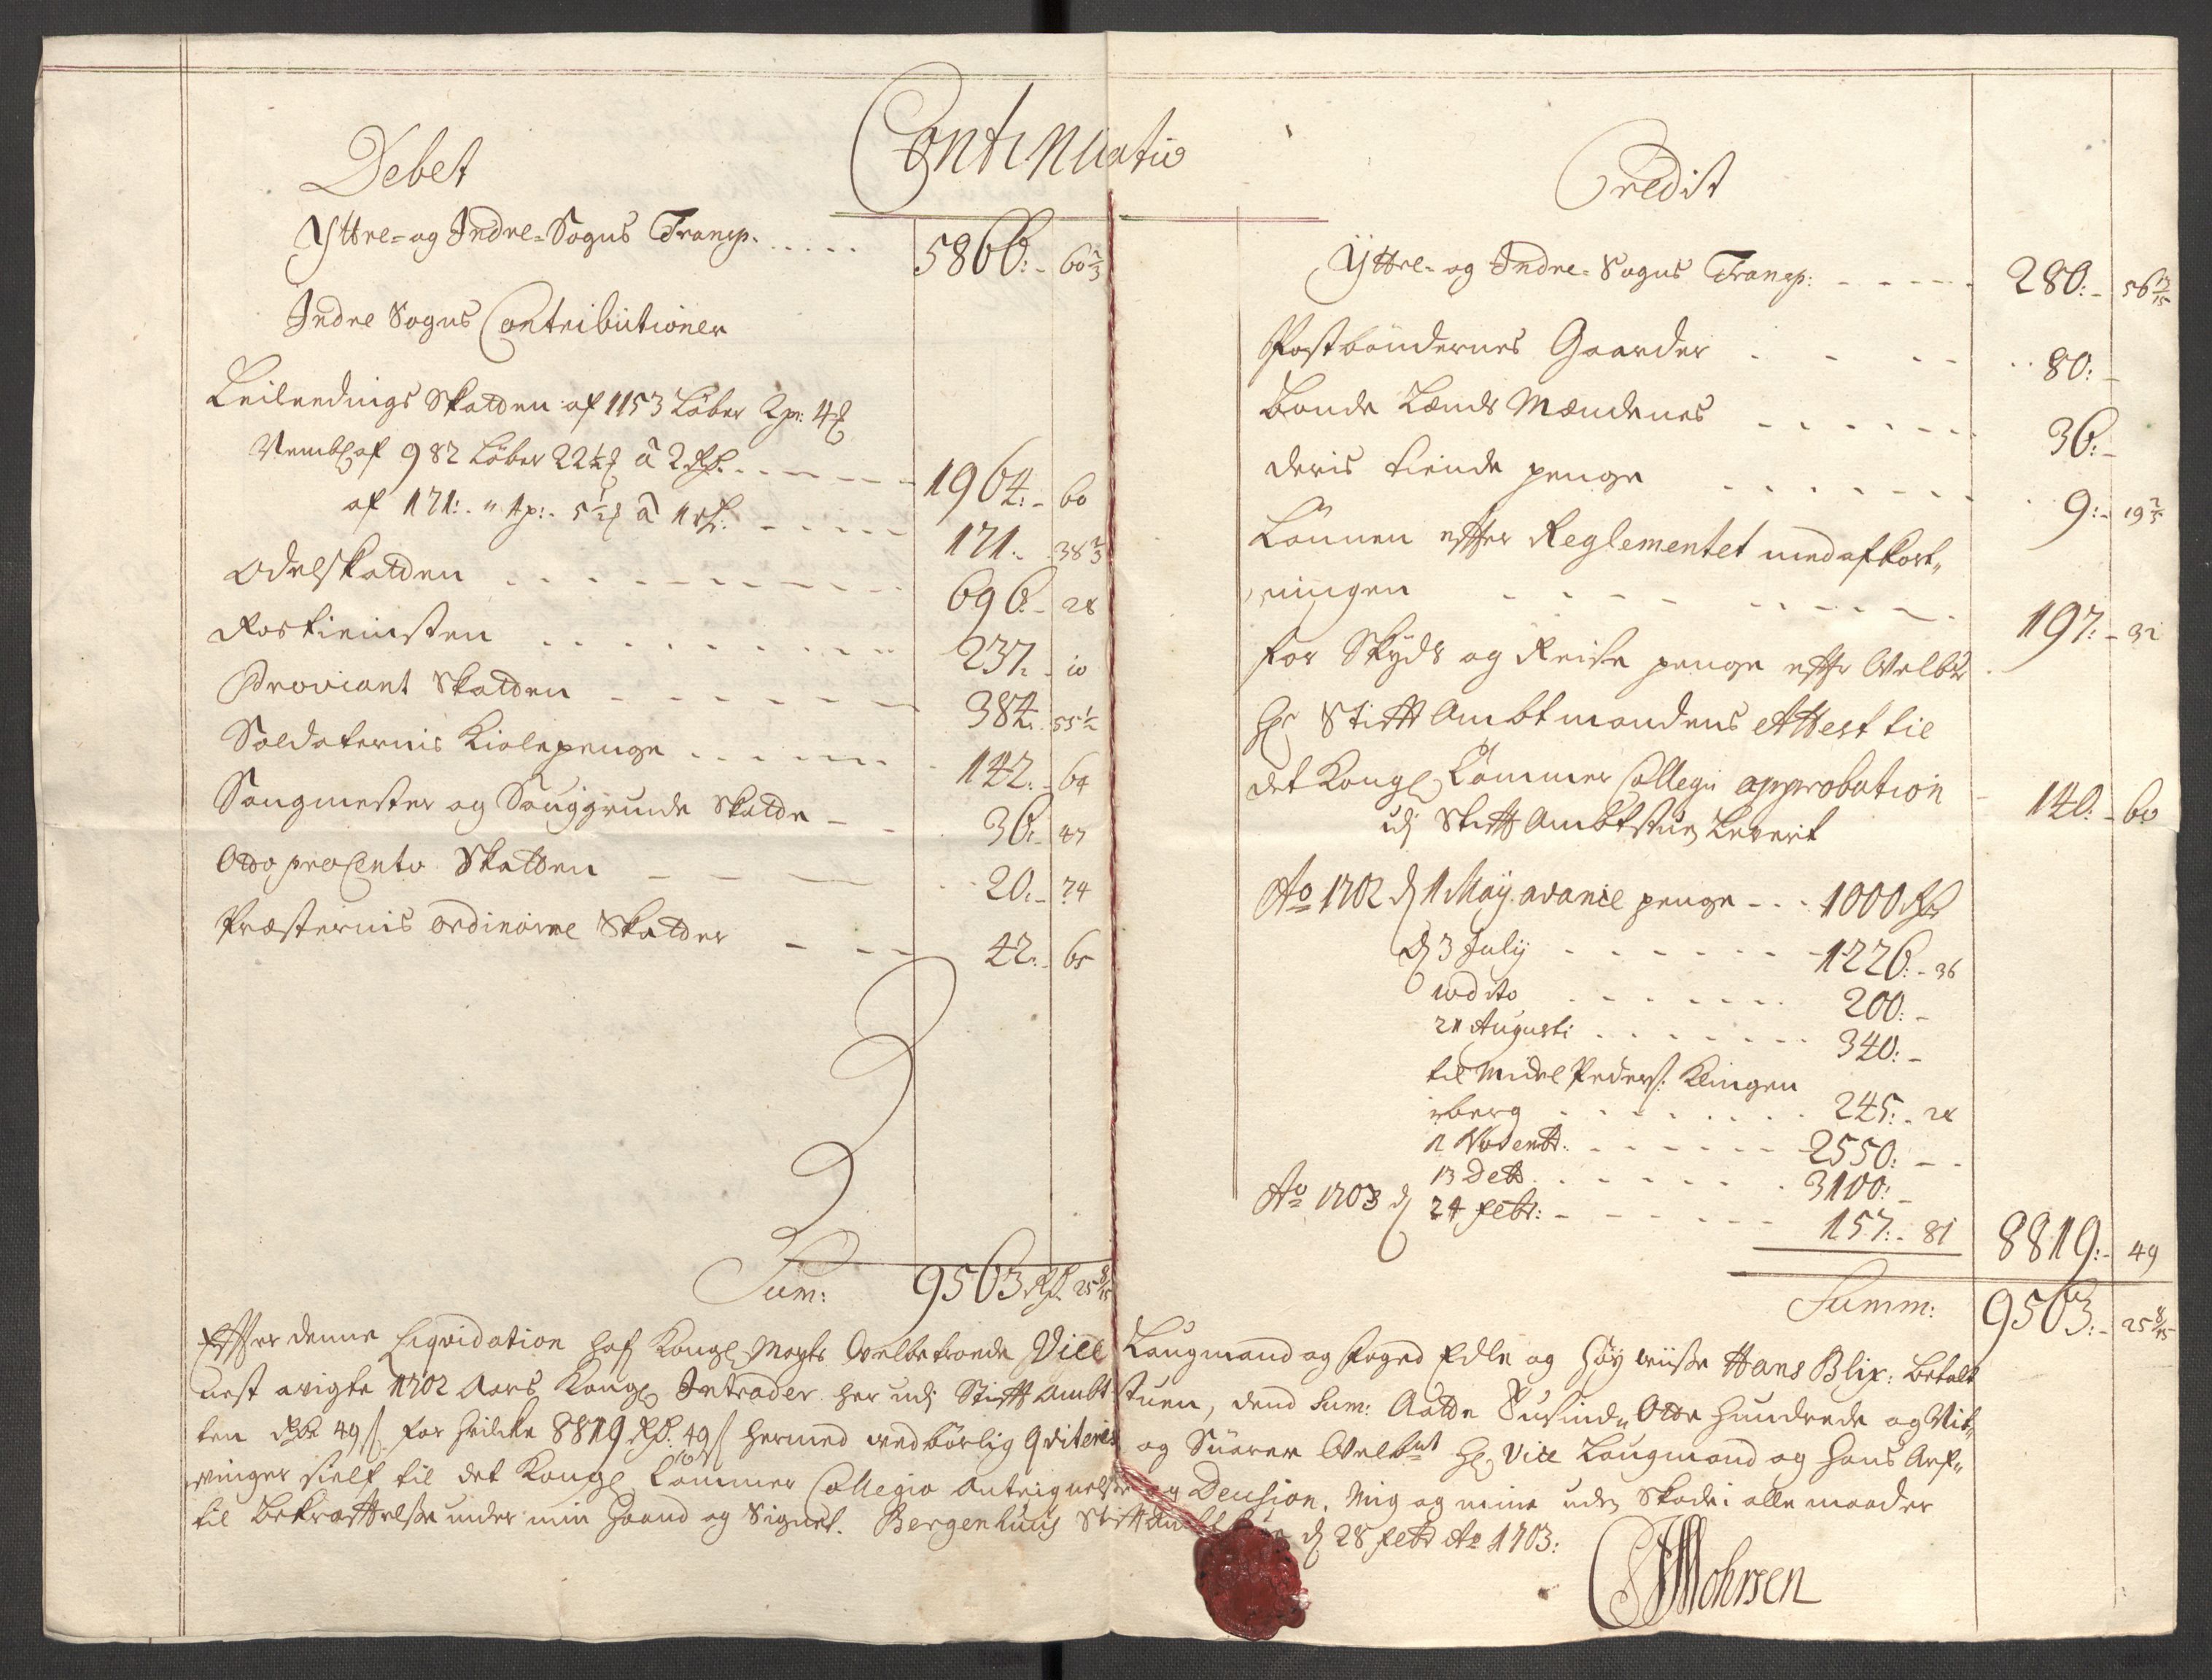 Continuatio
Debet
Yttre- og Indre-Sogns Transp. 5866:- 60 2/3
Indre Sogns Contributioner
Leilendings Skatten af 1153 Løber 2 pn: 4
Nembl af 982 Løber 22 1/2 â 2 Rdr. 1964:- 60
af 171:- 1 p:- 5 1/2 â 1 Rdr. 171:- 38 2/3
Odelskatten 696:- 28
Rostieinsten 237:- 10
Proviant Skatten 384:- 55 1/2
Soldaternis Kiolepenge 142:- 64
Saugmester og Sauggrunde Skatte 36:- 47
Otto pro Cento Skatten 20:- 74
Præsternis ordinaire Skatter 42:- 65
Sum: 9503 Rdr. 25 8/15
Credit
Yttre- og Indre-Sogns Transp: 280:- 56 13/15
Postbøndernes Gaarder 80:-
Bonde Lænds Mændenes 36:-
deris tiende penge 9:- 19 2/3
Lönnen efter Reglementet med afkort„
ningen 197:- 32
for Skyds og Reise penge efter Velb:
Hr Stifft Ambtmandens Attest til
det Kongl Cammer Collegii approbation 140:- 60
udj Stifft Ambtstuen Levert
Ao 1702 d 1 Maÿ avance penge 1000 Rdr
d 3 Julÿ 1226:- 36
dito 200:-
21 Augusti 340:-
til Peders: Klingen
berg 245:- 28
Novembr: 2550:-
13 Dets 3100:-
Ao 1703 d 24 febr: 157:- 81 8819:- 49
Summ: 9503:- 25 8/15
Effter denne Liqvidation haf Kongl Mayts Velbetroede Vice Laugmand og Foged Edle og Høy viise Hans Blix: betalt
nest avigte 1702 Aars Kongl Intrader her udj Stifft Ambtstuen, dend Sum: Aatte Tusinde Otte Hundrede og Nit„
ten Rdr 49 s for hvilcke 8819 Rdr. 49 s hermed vedbörlig qviteris og Suarer Velbmt Hr Vice Laugmand og hans Arf„
vinger sielf til det Kongl Cammer Collegio Antegnelser og Decision, Mig og mine uden Skade i alle maader
til Bekræftelse under min Haand og Signet. Bergenhuus Stifft Ambtstue d 28 febr Ao 1703:
Mohrsen